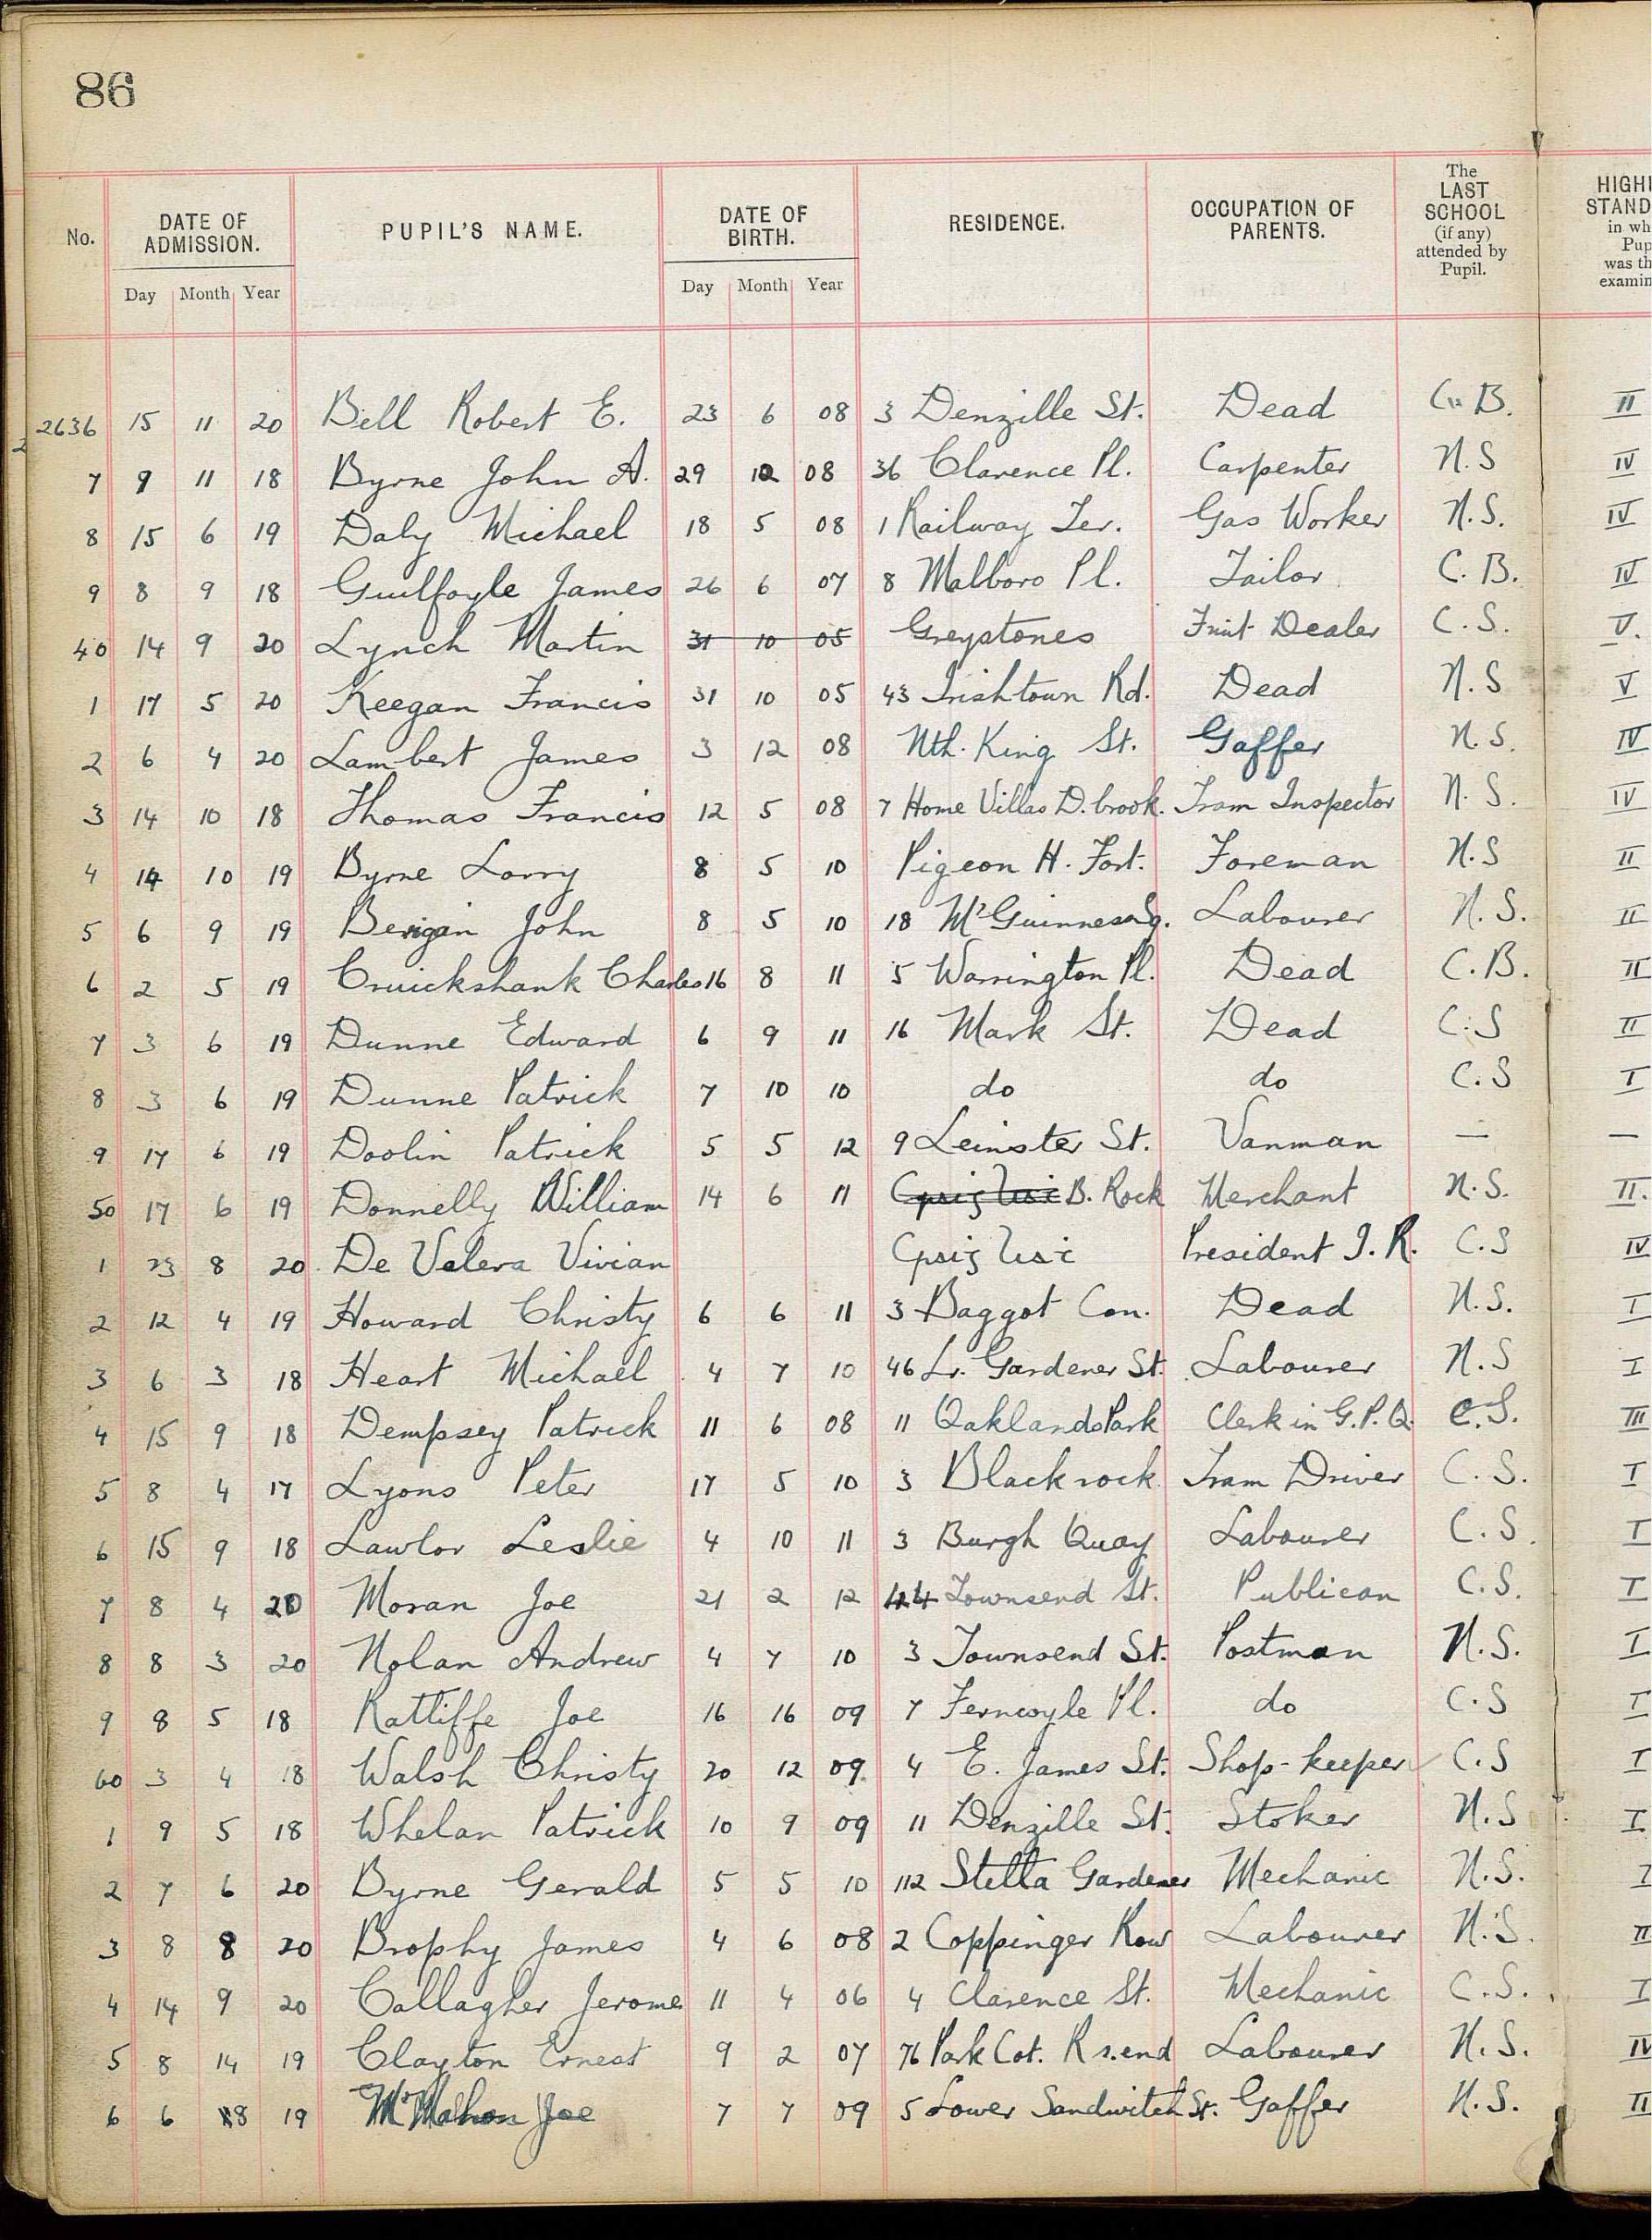 86
No. DATE OF ADMISSION. PUPIL'S NAME. DATE OF BIRTH. RESIDENCE. OCCUPATION OF PARENTS. The LAST SCHOOL (if any) attended by Pupil.
Day Month Year Day Month Year
2636 15 11 20 Bell Robert E. 23 6 08 3 Denzille St. Dead C. B. II
7 9 11 18 Byrne John A. 29 12 08 36 Clarence Pl. Carpenter N.S IV
8 15 6 19 Daly Michael 18 5 08 1 Railway Ter. Gas Worker N.S. IV
9 8 9 18 Guilfoyle James 26 6 07 8 Malboro Pl. Tailor C. B. IV
40 14 9 20 Lynch Martin 31 10 05 Greystones Fruit Dealer C. S. V.
1 17 5 20 Keegan Francis 31 10 05 43 Irishtown Rd. Dead N.S V
2 6 4 20 Lambert James 3 12 08 Nth. King St. Gaffer N.S. IV
3 14 10 18 Thomas Francis 12 5 08 7 Home Villas D.brook. Tram Inspector N. S. IV
4 14 10 19 Byrne Larry 8 5 10 Pigeon H. Fort. Foreman N.S II
5 6 9 19 Berigan John 8 5 10 18 McGuinness Sq. Labourer N.S. II
6 2 5 19 Cruickshank Charles 16 8 11 5 Warrington Pl. Dead C.B. II
7 3 6 19 Dunne Edward 6 9 11 16 Mark St. Dead C.S II
8 3 6 19 Dunne Patrick 7 10 10 do do C.S I
9 17 6 19 Doolin Patrick 5 5 12 9 Leinster St. Vanman — —
50 17 6 19 Donnelly William 14 6 11 B. Rock Merchant N.S. II.
1 23 8 20 De Valera Vivian President I. R. C.S IV
2 12 4 19 Howard Christy 6 6 11 3 Baggot Con. Dead N.S. I
3 6 3 18 Heart Michael 4 7 10 46 Lr. Gardener St. Labourer N.S I
4 15 9 18 Dempsey Patrick 11 6 08 11 Oaklands Park Clerk in G.P.O. C.S. III
5 8 4 17 Lyons Peter 17 5 10 3 Blackrock Tram Driver C. S. I
6 15 9 18 Lawlor Leslie 4 10 11 3 Burgh Quay Labourer C.S. I
7 8 4 20 Moran Joe 21 2 12 Townsend St. Publican C.S. I
8 8 3 20 Nolan Andrew 4 7 10 3 Townsend St. Postman N.S. I
9 8 5 18 Ratliffe Joe 16 16 09 7 Pl. do C.S I
60 3 4 18 Walsh Christy 20 12 09 4 E. James St. Shop-keeper C.S I
1 9 5 18 Whelan Patrick 10 9 09 11 Denzille St. Stoker N.S I
2 7 6 20 Byrne Gerald 5 5 10 112 Stella Gardener Mechanic N.S. I
3 8 8 20 Brophy James 4 6 08 2 Coppinger Row Labourer N.S. II
4 14 9 20 Callagher Jerome 11 4 06 4 Clarence St. Mechanic C.S. I
5 8 14 19 Clayton Ernest 9 2 07 76 Park Cot. Rs.end Labourer N.S. IV
6 6 8 19 McMahon Joe 7 7 09 5 Lower Sandwitch St. Gaffer N.S. II